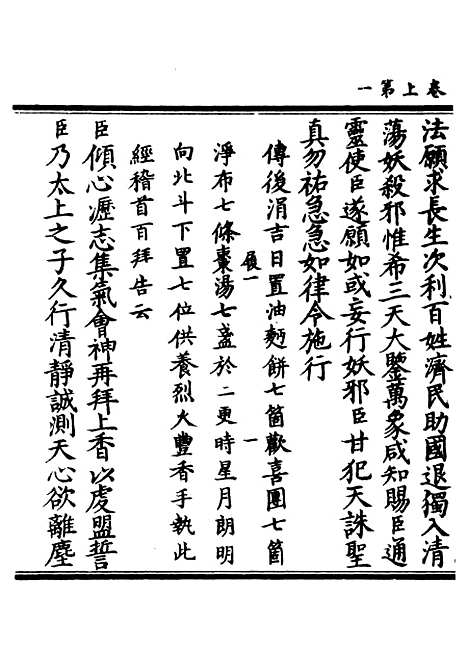 卷上第一
法願求長生次利百姓濟民助國退獨入清
蕩妖殺邪惟希三天大鑒萬象咸知賜臣通
靈使臣遂願如或妄行妖邪臣甘犯天誅聖
真勿祐急急如律令施行
傳後涓吉日置油麵餅七箇歡喜團七箇
淨布七條棗湯七盞於二更時星月朗明
履一
一
向北斗下置七位供養烈火豐香手執此
經稽首百拜告云
臣傾心瀝志集氣會神再拜上香以虔盟誓
臣乃太上之子久行清靜誠測天心欲離塵